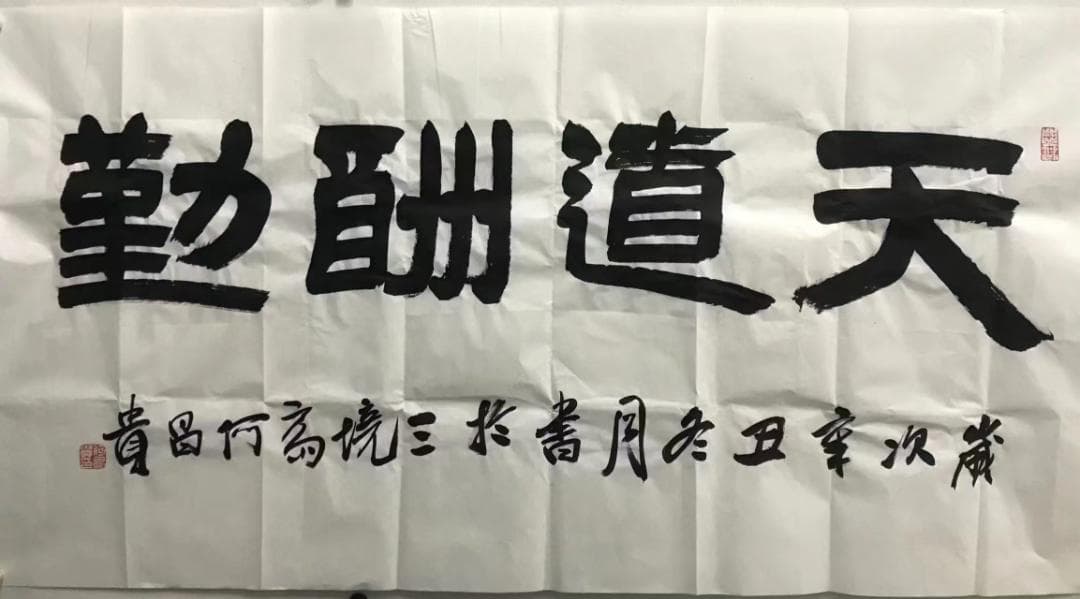 天道酬勤
歲次辛丑冬月書於三境高何昌貴